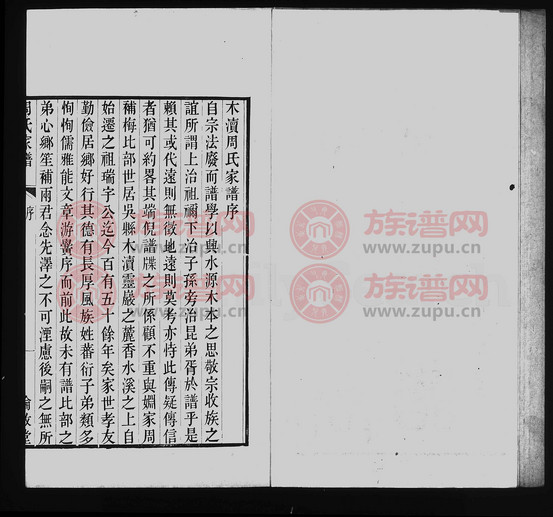 木瀆周氏家譜序
自宗法廢而譜學以興水源木本之思敬宗收族之
誼所謂上治祖禰下治子孫旁治昆弟胥於譜乎是
賴其或代遠則無徵地遠則莫考亦恃此傳疑傳信
者猶可約畧其端倪譜牒之所係顧不重與婣家周
補梅比部世居吳縣木瀆靈巖之麓香水溪之上自
始遷之祖瑞宇公迄今百有五十餘年矣家世孝友
勤儉居鄉好行其德有長厚風族姓蕃衍子弟類多
恂恂儒雅能文章游黌序而前此故未有譜比部之
弟心鄉笙補雨君念先澤之不可湮慮後嗣之無所
周氏家譜
序
一
族谱网
www.zupu.cn
族谱网
www.zupu.cn
族谱网
www.zupu.cn
族谱网
www.zupu.cn
族谱网
www.zupu.cn
族谱网
www.zupu.cn